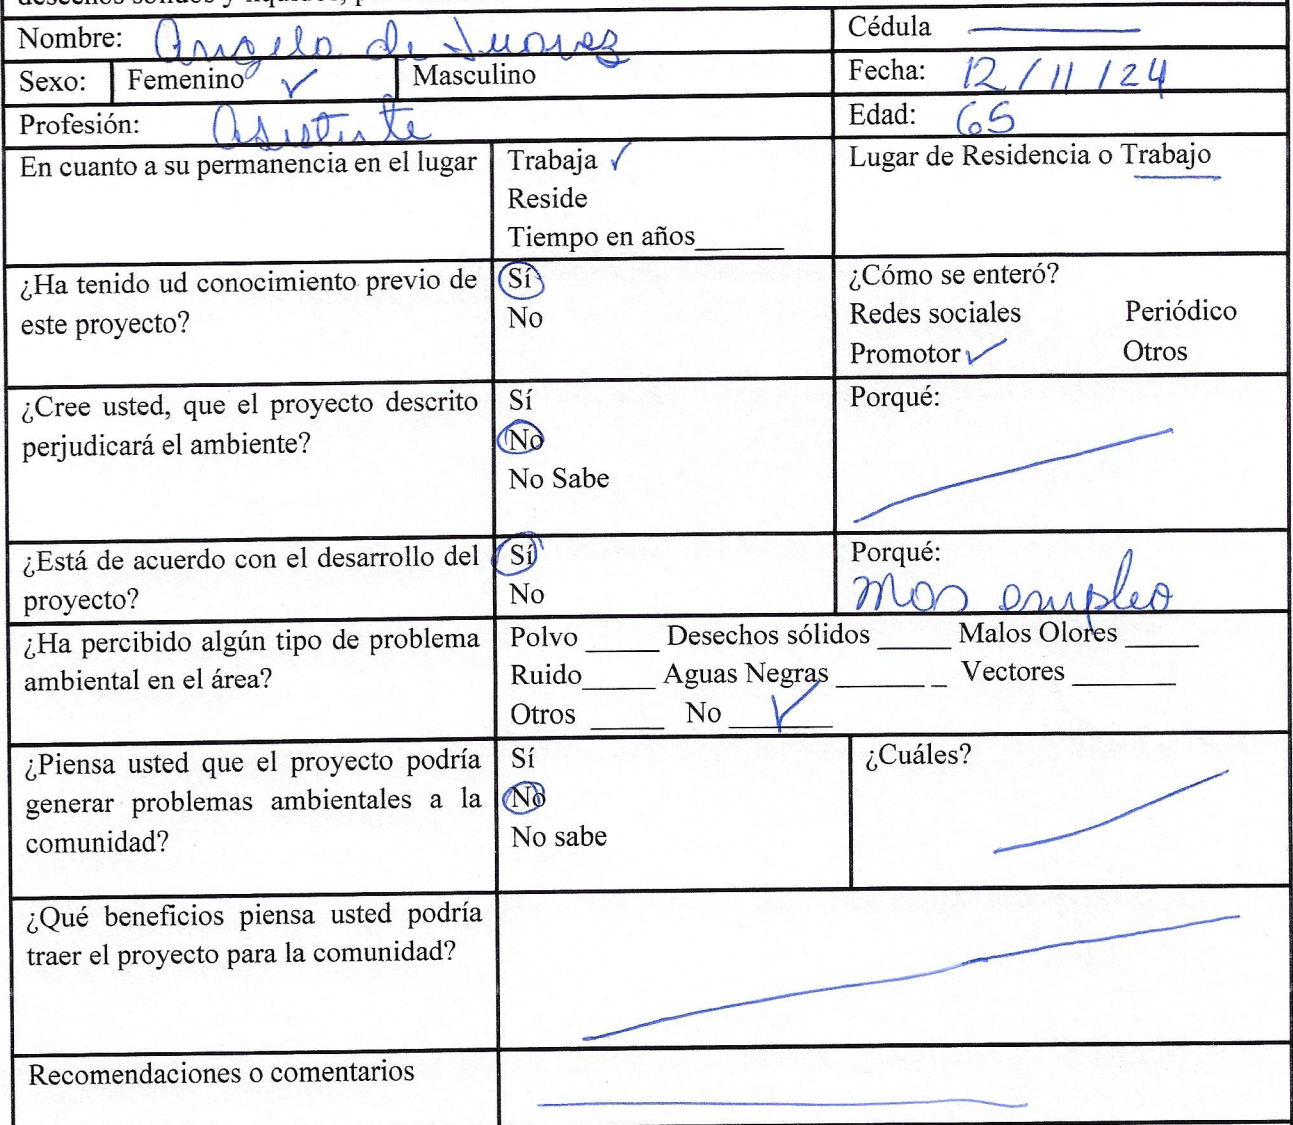 desechos sólidos y líquidos, p
Nombre: Angela de Juarez
Cédula
Sexo: Femenino ✓ Masculino
Fecha: 12/11/24
Profesión: Asistente
Edad: 65
En cuanto a su permanencia en el lugar
Trabaja ✓
Reside
Tiempo en años______
Lugar de Residencia o Trabajo
¿Ha tenido ud conocimiento previo de
este proyecto?
Sí
No
¿Cómo se enteró?
Redes sociales Periódico
Promotor ✓ Otros
¿Cree usted, que el proyecto descrito
perjudicará el ambiente?
Sí
No
No Sabe
Porqué:
¿Está de acuerdo con el desarrollo del
proyecto?
Sí
No
Porqué:
mas empleo
¿Ha percibido algún tipo de problema
ambiental en el área?
Polvo _____ Desechos sólidos _____ Malos Olores _____
Ruido_____ Aguas Negras ______ _ Vectores _______
Otros _____ No ___✓____
¿Piensa usted que el proyecto podría
generar problemas ambientales a la
comunidad?
Sí
No
No sabe
¿Cuáles?
¿Qué beneficios piensa usted podría
traer el proyecto para la comunidad?
Recomendaciones o comentarios